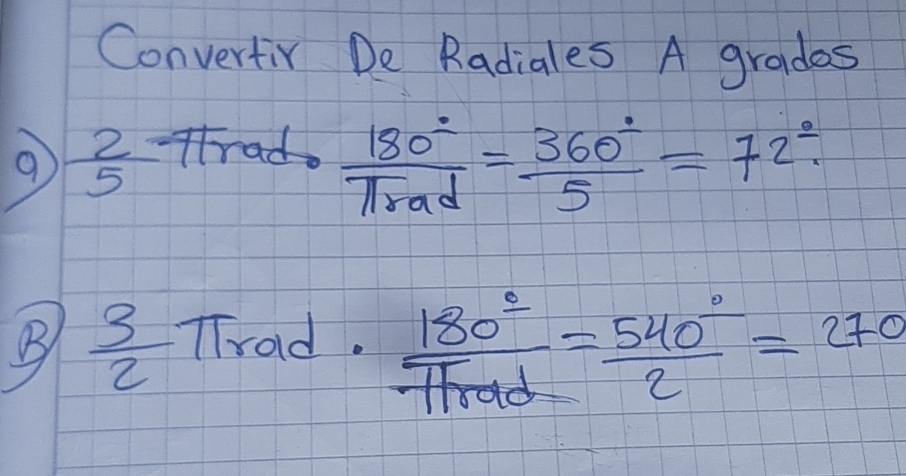 Convertir De Radiales A grados
a) 2/5 πrad. 180°/πrad = 360°/5 = 72°.
B) 3/2 πrad . 180°/πrad = 540°/2 = 270